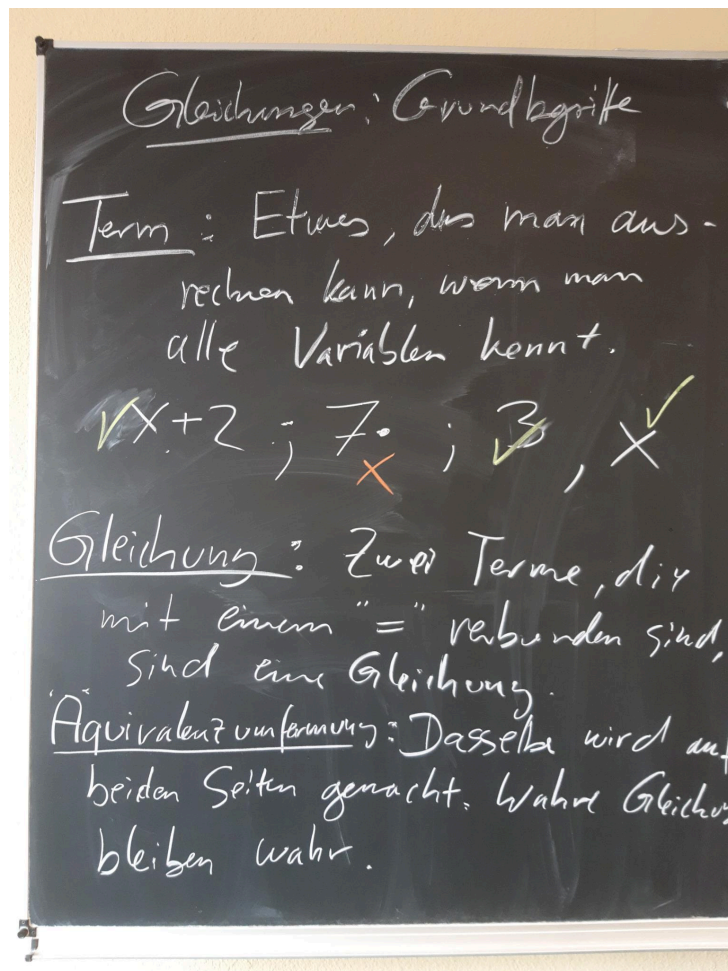 Gleichungen: Grundbegriffe
Term: Etwas, das man aus-
rechnen kann, wenn man
alle Variablen kennt.
✓x+2 ; 7· ✗ ; 3 ✓, x ✓
Gleichung: Zwei Terme, die
mit einem "=" verbunden sind,
sind eine Gleichung.
Äquivalenzumformung: Dasselbe wird auf
beiden Seiten gemacht. Wahre
bleiben wahr.